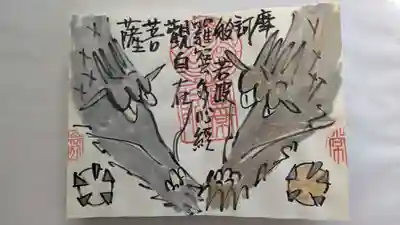 摩訶
般若波
羅蜜多心経
観自在
菩
薩
常